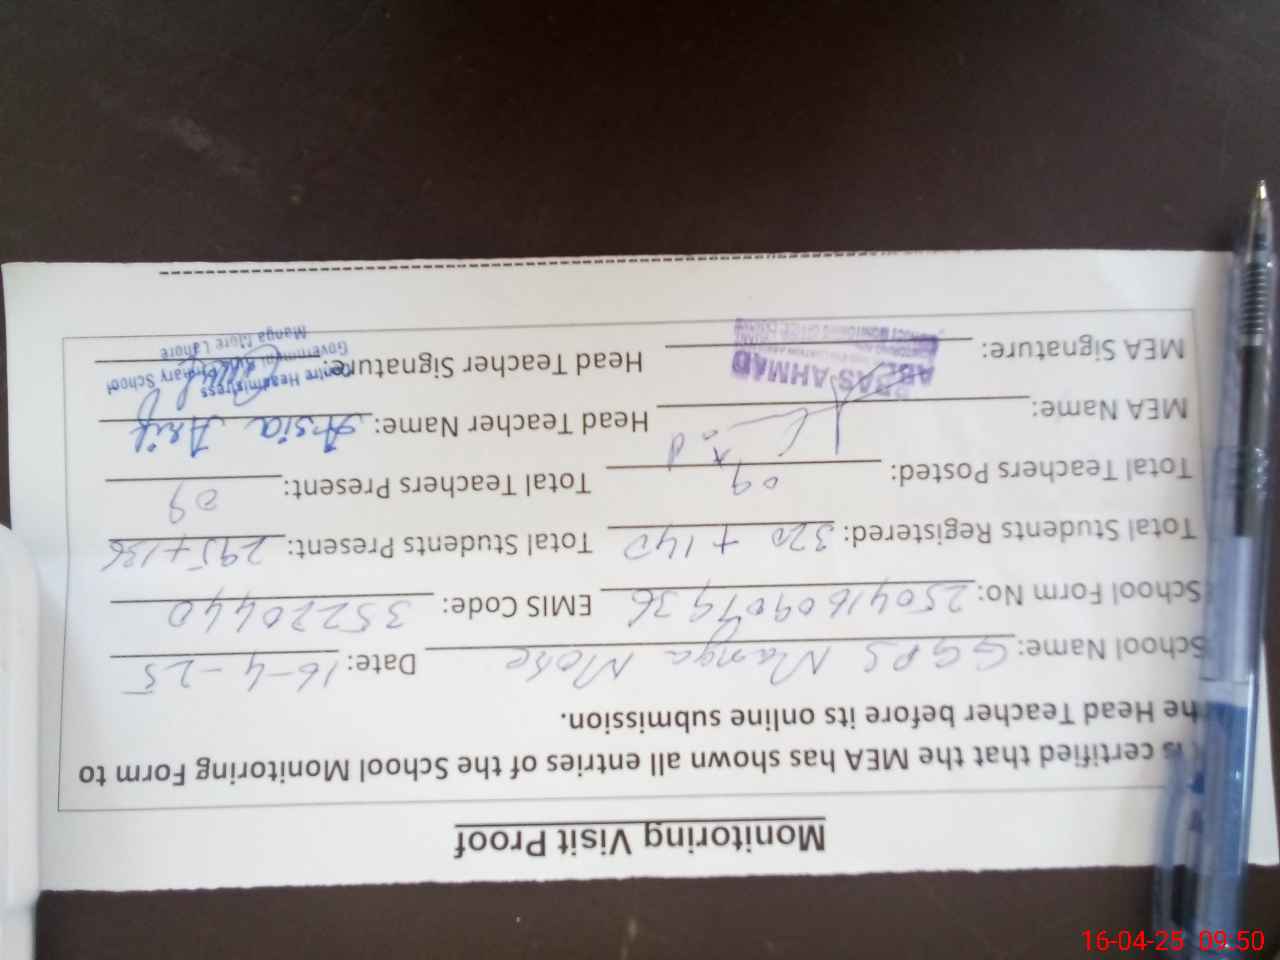 Monitoring Visit Proof
is certified that the MEA has shown all entries of the School Monitoring Form to
the Head Teacher before its online submission.
School Name: GGPS Manga More Date: 16-4-25
School Form No: 2504160907936 EMIS Code: 35220440
Total Students Registered: 320 + 140 Total Students Present: 295+136
Total Teachers Posted: 09 Total Teachers Present: 09
MEA Name: Head Teacher Name: Asia Arif
ABBAS AHMAD
MEA Signature: Head Teacher Signature:
Centre Headmistress
Government Primary School
Manga More Lahore
16-04-25 09:50